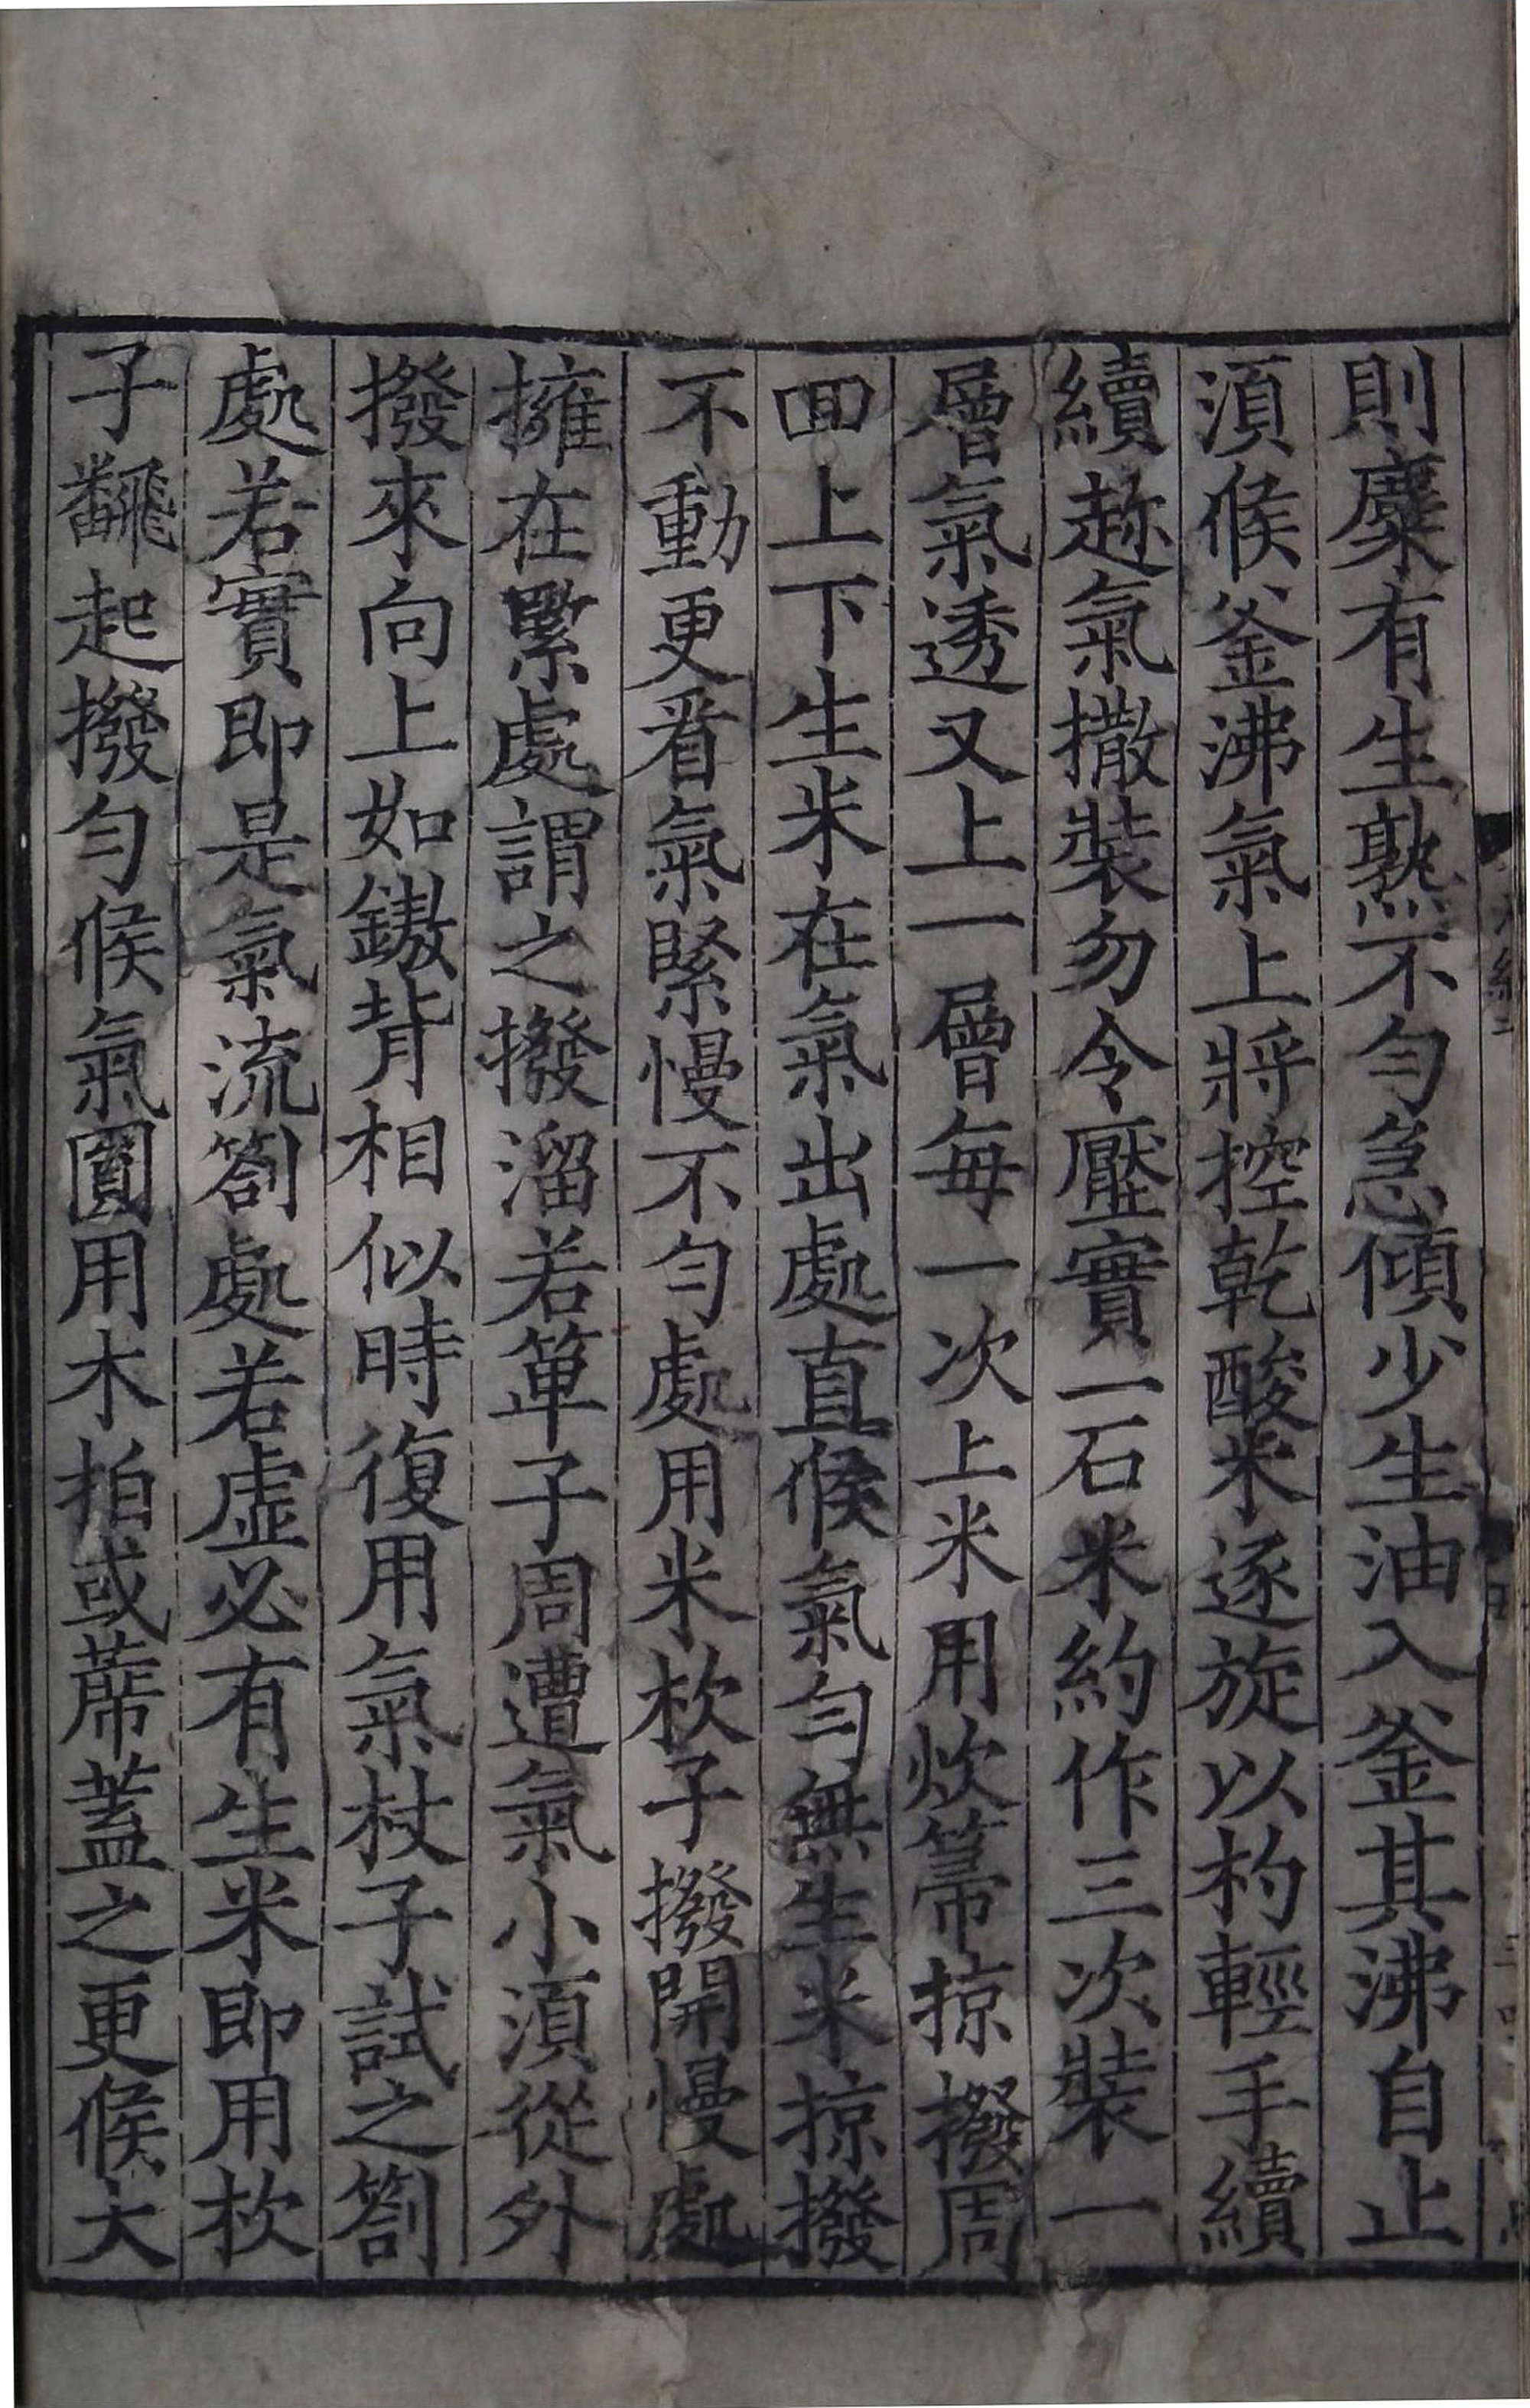 則麋有生熟不匀急傾少生油入釜其沸自止
湏候釜沸氣上將控乾酸米逐旋以杓輕手續
續趂氣撒裝勿令壓實一石米約作三次裝一
層氣透又上一層每一次上米用炊箒掠撥周
回上下生米在氣出處直候氣匀無生米掠撥
不動更看氣緊慢不匀處用米杴子撥開慢處
擁在緊處謂之撥溜若箄子周遭氣小湏從外
撥來向上如鏊背相似時復用氣杖子試之劄
處若實即是氣流劄處若虛必有生米即用杴
子飜起撥匀候氣圓用木拍或蓆蓋之更候大